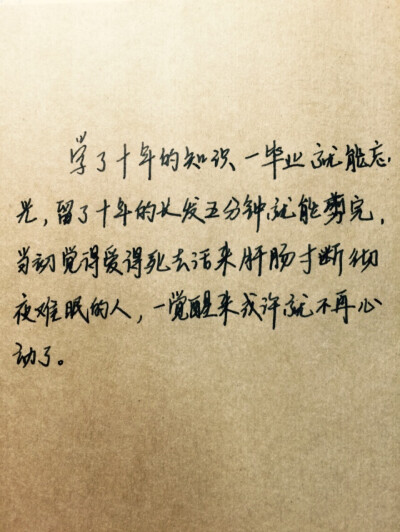 学了十年的知识、一毕业就能忘
光，留了十年的长发五分钟就能剪完，
当初觉得爱得死去活来肝肠寸断彻
夜难眠的人，一觉醒来或许就不再心
动了。